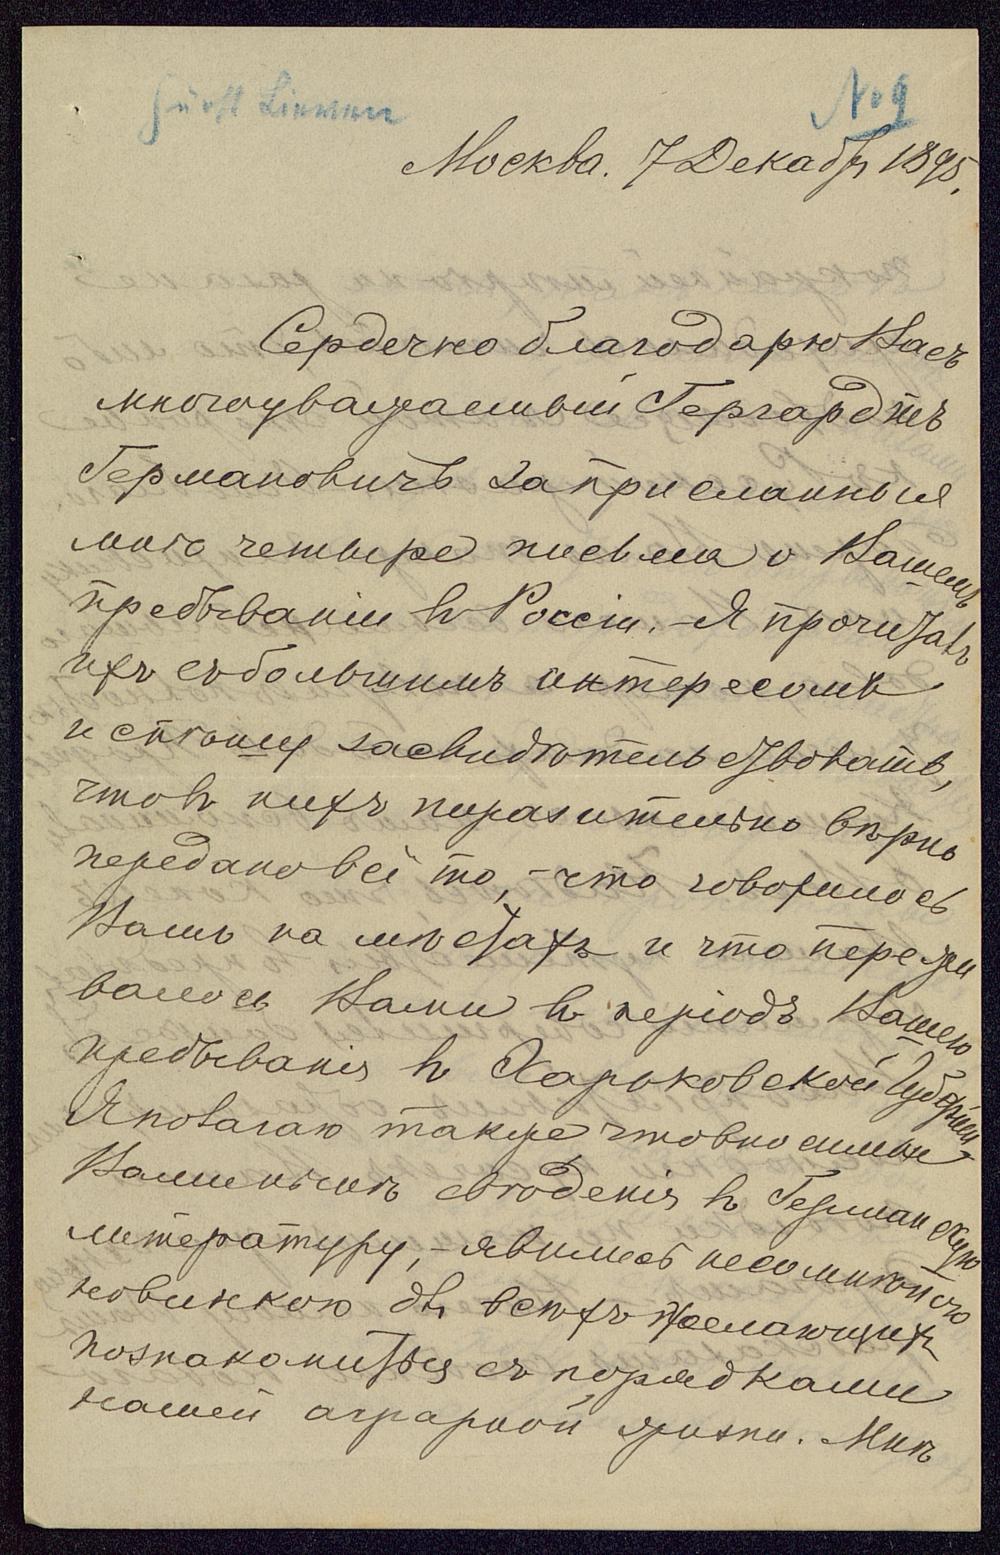 Fürst Liewen
No 9
Москва. 7 Декабр 1895.
Сердечно благодарю Васъ
многоуважаемый Гергардтъ
Германовичъ за присланныя
мнѣ четыре письма о Вашемъ
пребываніи въ Россіи. - Я прочиталъ
ихъ съ большимъ интересомъ
и спѣшу засвидѣтельствовать,
что въ нихъ поразительно вѣрно
передано всё то, - что говорилось
Вамъ на мѣстахъ и что пережи
валось Вами въ періодъ Вашего
пребыванія въ Харьковской Губерніи
Я полагаю также что вносимыя
свѣденія въ Германскую
литературу, - явились несомнѣнною
новинкою для всѣхъ желающихъ
познакомиться съ порядками
нашей аграрной жизни. Мнѣ